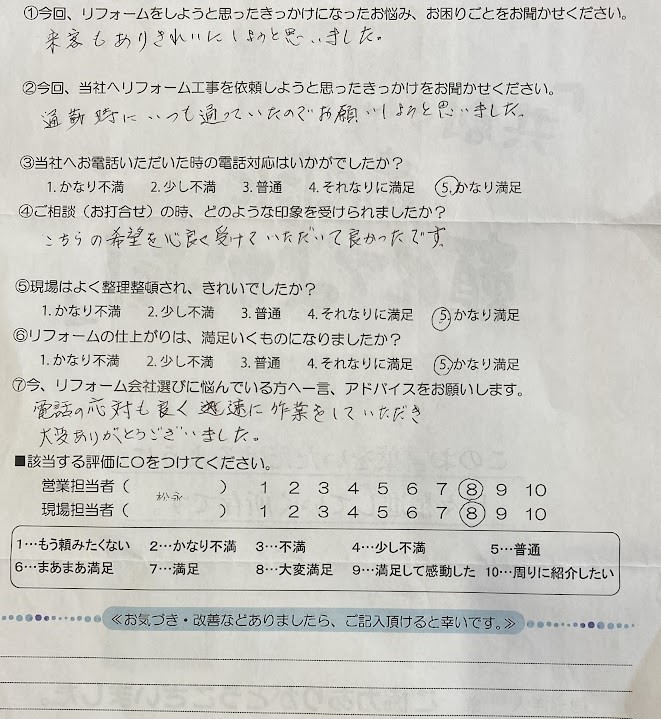 ①今回、リフォームをしようと思ったきっかけになったお悩み、お困りごとをお聞かせください。
来客もありきれいにしようと思いました。
②今回、当社へリフォーム工事を依頼しようと思ったきっかけをお聞かせください。
通勤時にいつも通っていたのでお願いしようと思いました。
③当社へお電話いただいた時の電話対応はいかがでしたか？
1. かなり不満 2. 少し不満 3. 普通 4. それなりに満足 5. かなり満足
④ご相談（お打合せ）の時、どのような印象を受けられましたか？
こちらの希望を心良く受けていただいて良かったです。
⑤現場はよく整理整頓され、きれいでしたか？
1. かなり不満 2. 少し不満 3. 普通 4. それなりに満足 5. かなり満足
⑥リフォームの仕上がりは、満足いくものになりましたか？
1. かなり不満 2. 少し不満 3. 普通 4. それなりに満足 5. かなり満足
⑦今、リフォーム会社選びに悩んでいる方へ一言、アドバイスをお願いします。
電話の応対も良く 速に作業をしていただき
大変ありがとうございました。
■該当する評価に〇をつけてください。
営業担当者（ ） 1 2 3 4 5 6 7 8 9 10
松永
現場担当者（ ） 1 2 3 4 5 6 7 8 9 10
1…もう頼みたくない 2…かなり不満 3…不満 4…少し不満 5…普通
6…まあまあ満足 7…満足 8…大変満足 9…満足して感動した 10…周りに紹介したい
≪お気づき・改善などありましたら、ご記入頂けると幸いです。≫